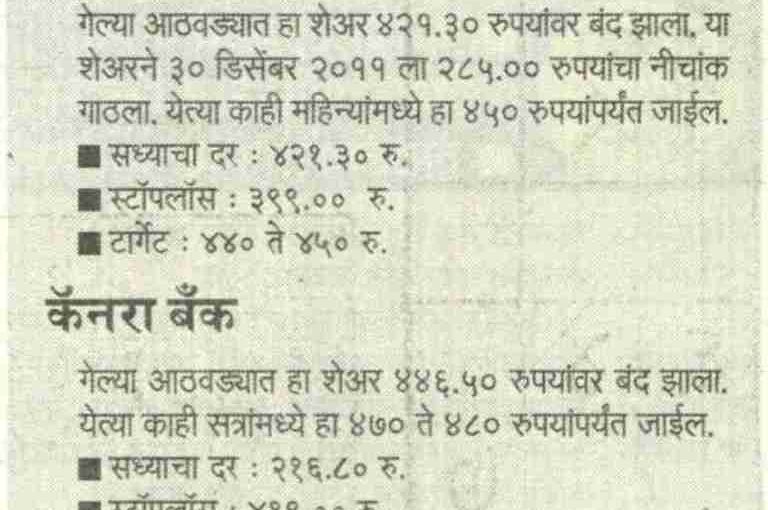 गेल्या आठवड्यात हा शेअर ४२१.३० रुपयांवर बंद झाला. या
शेअरने ३० डिसेंबर २०११ ला २८५.०० रुपयांचा नीचांक
गाठला. येत्या काही महिन्यांमध्ये हा ४५० रुपयांपर्यंत जाईल.
■ सध्याचा दर : ४२१.३० रु.
■ स्टॉपलॉस : ३९९.०० रु.
■ टार्गेट : ४४० ते ४५० रु.
कॅनरा बँक
गेल्या आठवड्यात हा शेअर ४४६.५० रुपयांवर बंद झाला.
येत्या काही सत्रांमध्ये हा ४७० ते ४८० रुपयांपर्यंत जाईल.
■ सध्याचा दर : २१६.८० रु.
■ स्टॉपलॉस :